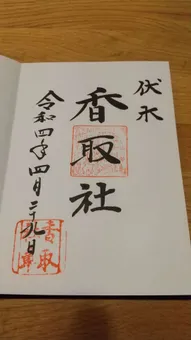 伏水
香取社
令和四年四月二十九日
香取